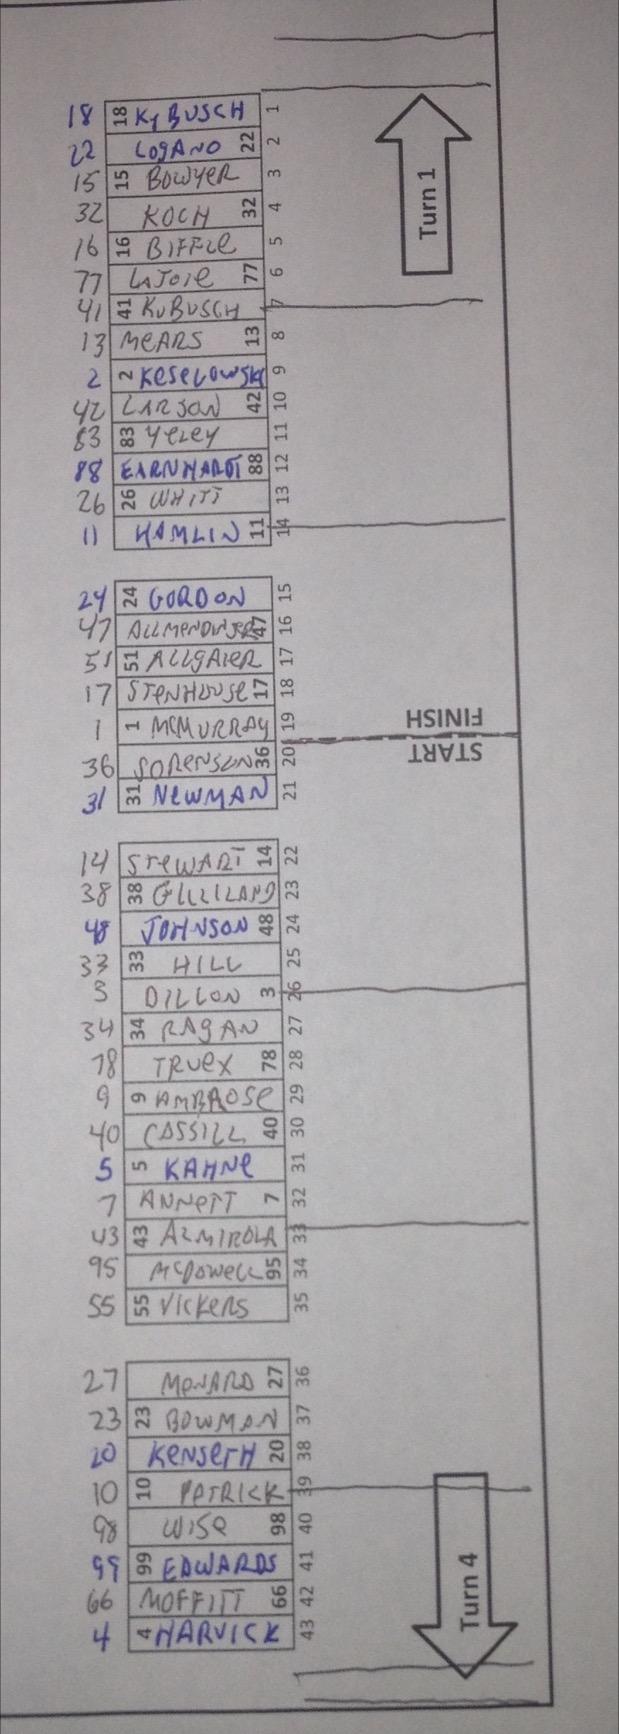 Turn 1
18 18 Ky BUSCH 1
22 LOGANO 22 2
15 15 BOWYER 3
32 KOCH 32 4
16 16 BIFFLE 5
77 LAJOIE 77 6
41 41 KUBUSCH 7
13 MEARS 13 8
2 2 KESELOWSKI 9
42 LARSON 42 10
83 83 YELEY 11
88 EARNHARDT 88 12
26 26 WHITT 13
11 HAMLIN 11 14
24 24 GORDON 15
47 ALLMENDINGER 47 16
51 51 ALLGAIER 17
17 STENHOUSE 17 18
1 1 MCMURRAY 19
FINISH
START
36 SORENSON 36 20
31 31 NEWMAN 21
14 STEWART 14 22
38 38 GILLILAND 23
48 JOHNSON 48 24
33 33 HILL 25
3 DILLON 3 26
34 34 RAGAN 27
78 TRUEX 78 28
9 9 AMBROSE 29
40 CASSILL 40 30
5 5 KAHNE 31
7 ANNETT 7 32
43 43 ALMIROLA 33
95 MCDOWELL 95 34
55 55 VICKERS 35
27 MENARD 27 36
23 23 BOWMAN 37
20 KENSETH 20 38
10 10 PATRICK 39
98 WISE 98 40
99 99 EDWARDS 41
66 MOFFITT 66 42
4 4 HARVICK 43
Turn 4